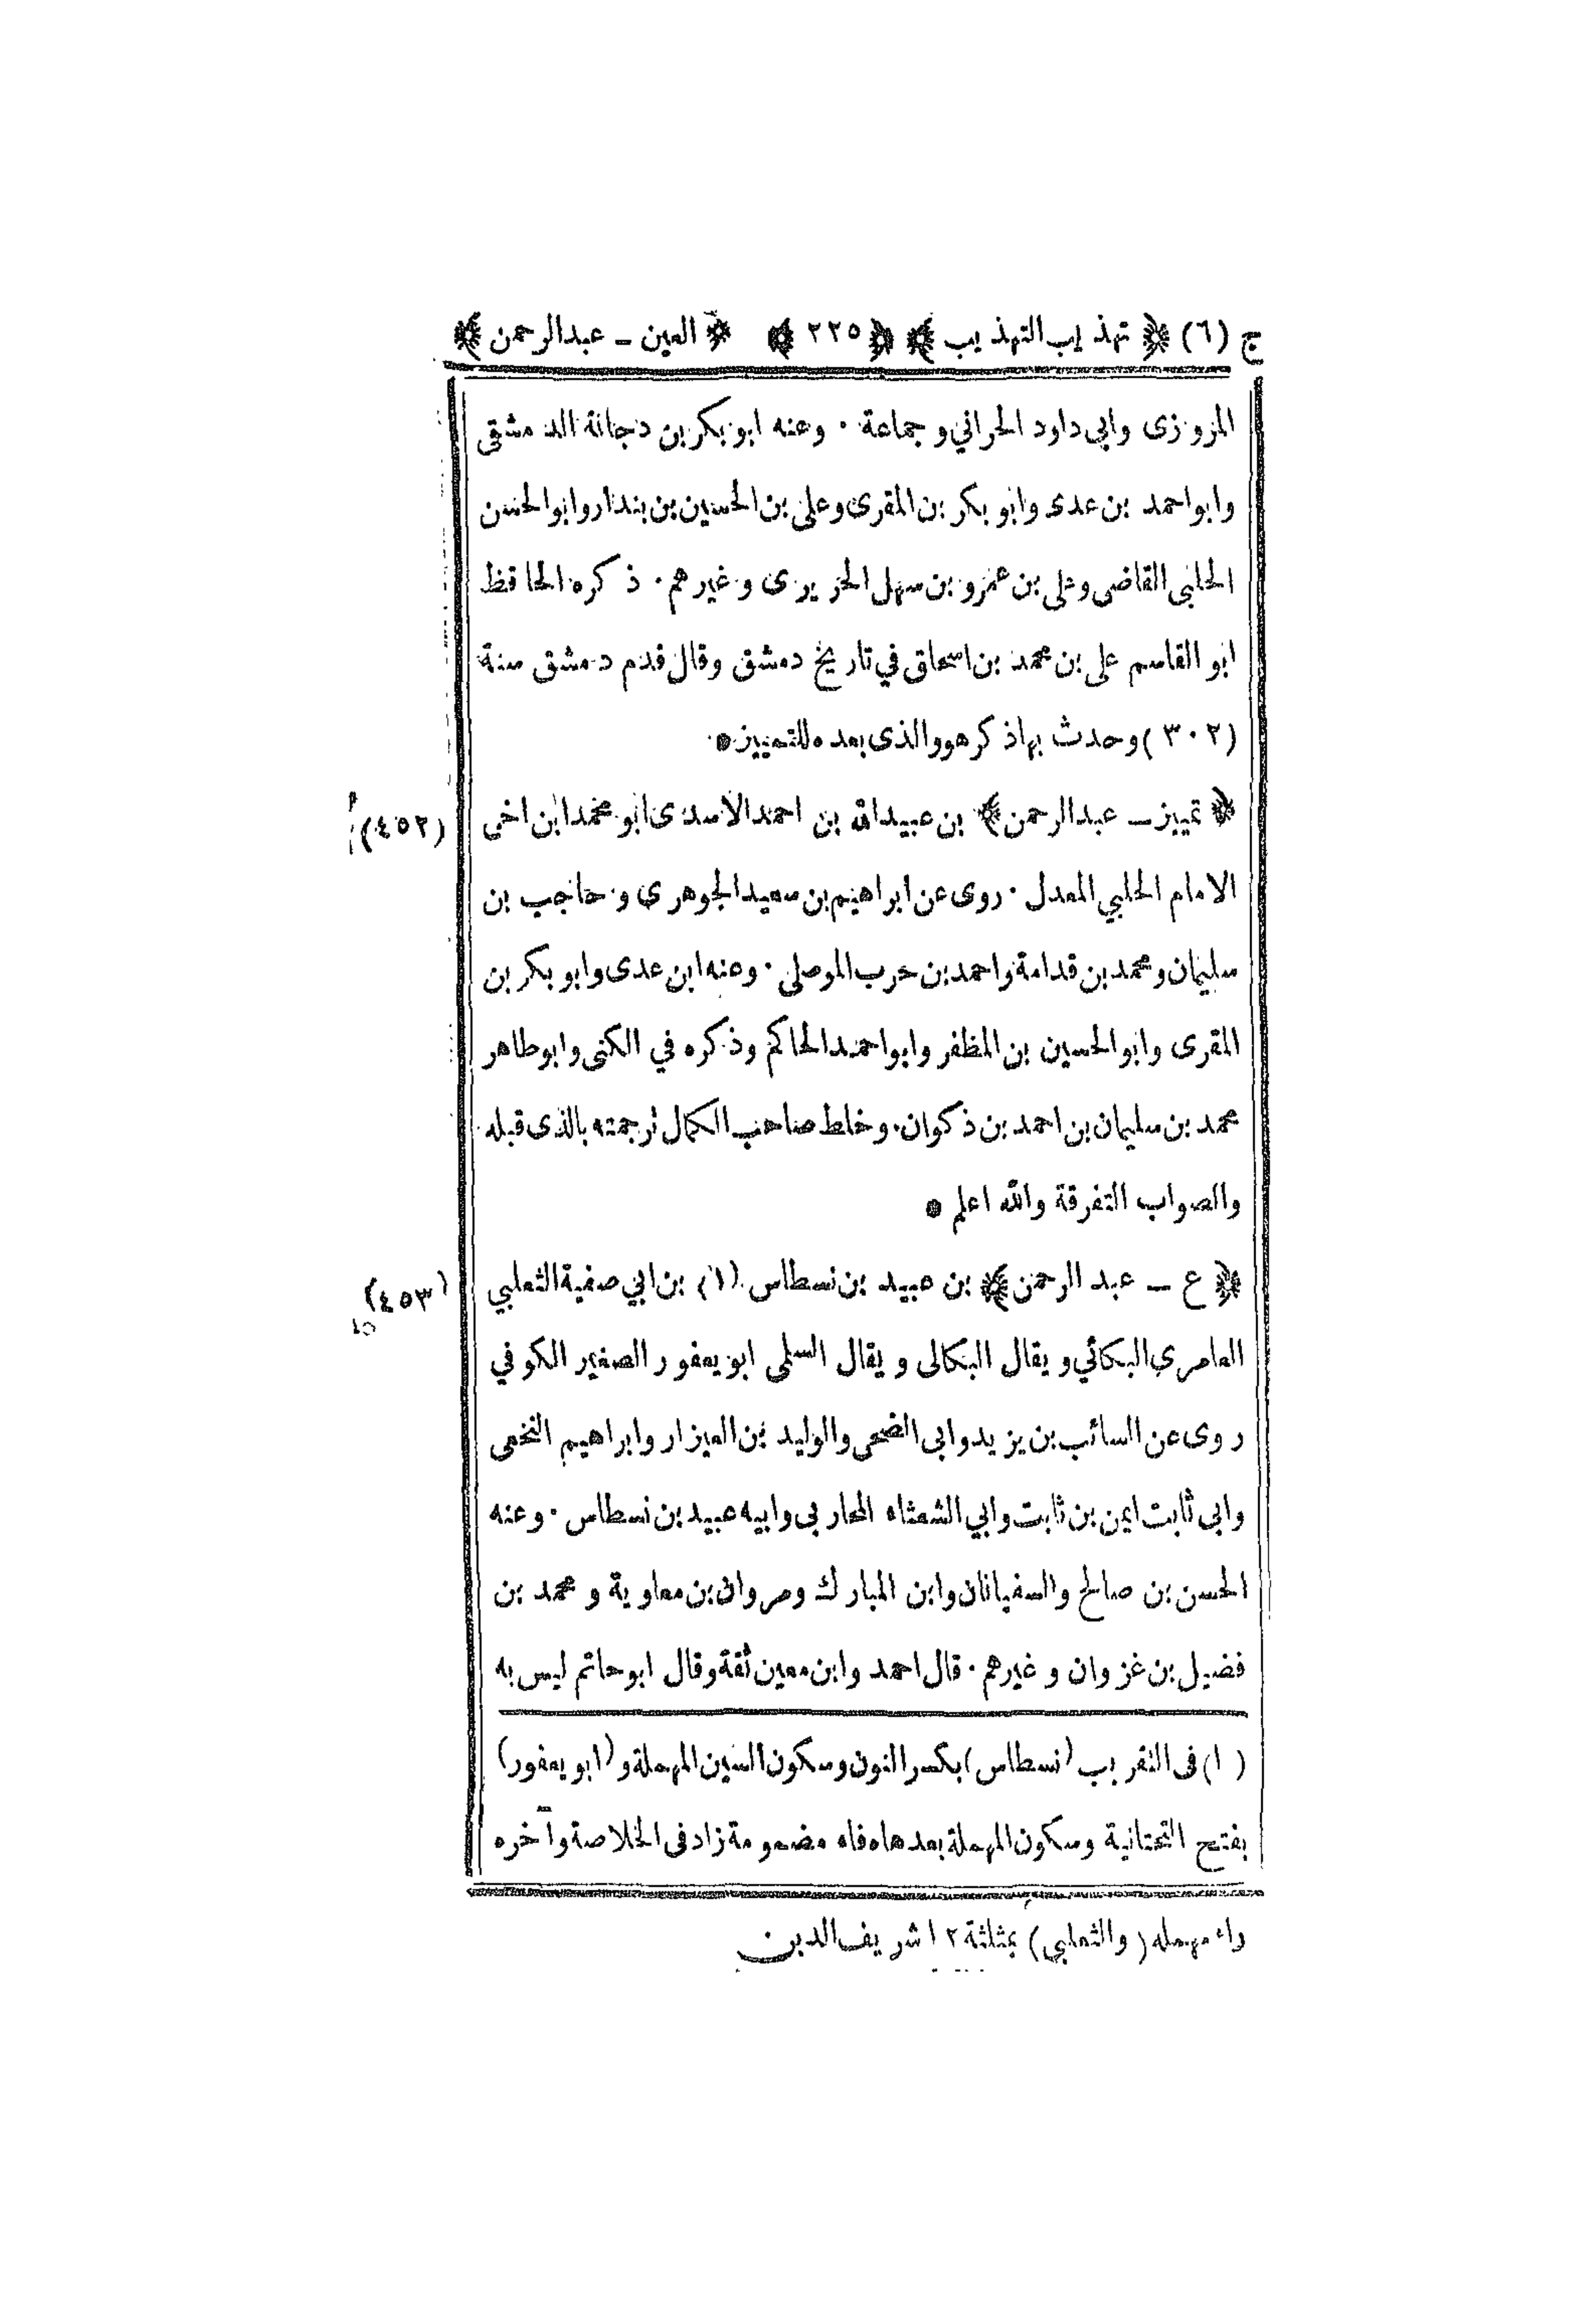 ج (٦) ﴿ تهذيب التهذيب ﴾ ﴿ ٢٢٥ ﴾ ﴿ العين ــ عبدالرحمن ﴾
المروزى وابي داود الحراني و جماعة ٠ وعنه ابو بكر بن دجانة الدمشقى
وابواحمد بن عدى وابو بكر بن المقرى وعلى بن الحسين بن بندار وابوالحسن
الحلبى القاضى وعلى بن عمرو بن سهل الحريرى و غيرهم ٠ ذكره الحافظ
ابو القاسم على بن محمد بن اسحاق في تاريخ دمشق وقال قدم دمشق سنة
(٣٠٢) وحدث بهاذ كرهو والذى بعده للتمييز •
﴿ تمييز ــ عبدالرحمن ﴾ بن عبيدالله بن احمدالاسدى ابو محمد ابن اخى
(٤٥٢)
الامام الحلبي المعدل ٠ روى عن ابراهيم بن سعيدالجوهرى و حاجب بن
سليمان ومحمد بن قدامة واحمد بن حرب الموصلى ٠ وعنه ابن عدى وابو بكر بن
المقرى وابوالحسين بن المظفر وابواحمدالحاكم وذكره في الكنى وابوطاهر
محمد بن سليمان بن احمد بن ذكوان ٠ وخلط صاحب الكمال ترجمته بالذى قبله
والصواب التفرقة والله اعلم •
﴿ ع ــ عبد الرحمن ﴾ بن عبيد بن نسطاس (١) بن ابي صفية الثعلبي
(٤٥٣)
العامرى البكائي و يقال البكالى و يقال السلمى ابو يعفور الصغير الكوفي
روى عن السائب بن يزيد وابى الضحى والوليد بن العيزار وابراهيم النخعى
وابى ثابت ايمن بن ثابت وابي الشعثاء المحاربى وابيه عبيد بن نسطاس ٠ وعنه
الحسن بن صالح والسفيانان وابن المبارك ومروان بن معاوية و محمد بن
فضيل بن غزوان و غيرهم ٠ قال احمد وابن معين ثقة وقال ابوحاتم ليس به
(١) فى التقريب (نسطاس) بكسر النون وسكون السين المهملة و (ابو يعفور)
بفتح التحتانية وسكون المهملة بعدهاه فاء مضمومة زاد فى الخلاصة وآخره
راء مهمله (والثعلبي) بمثلثة ١٢ شريف الدين